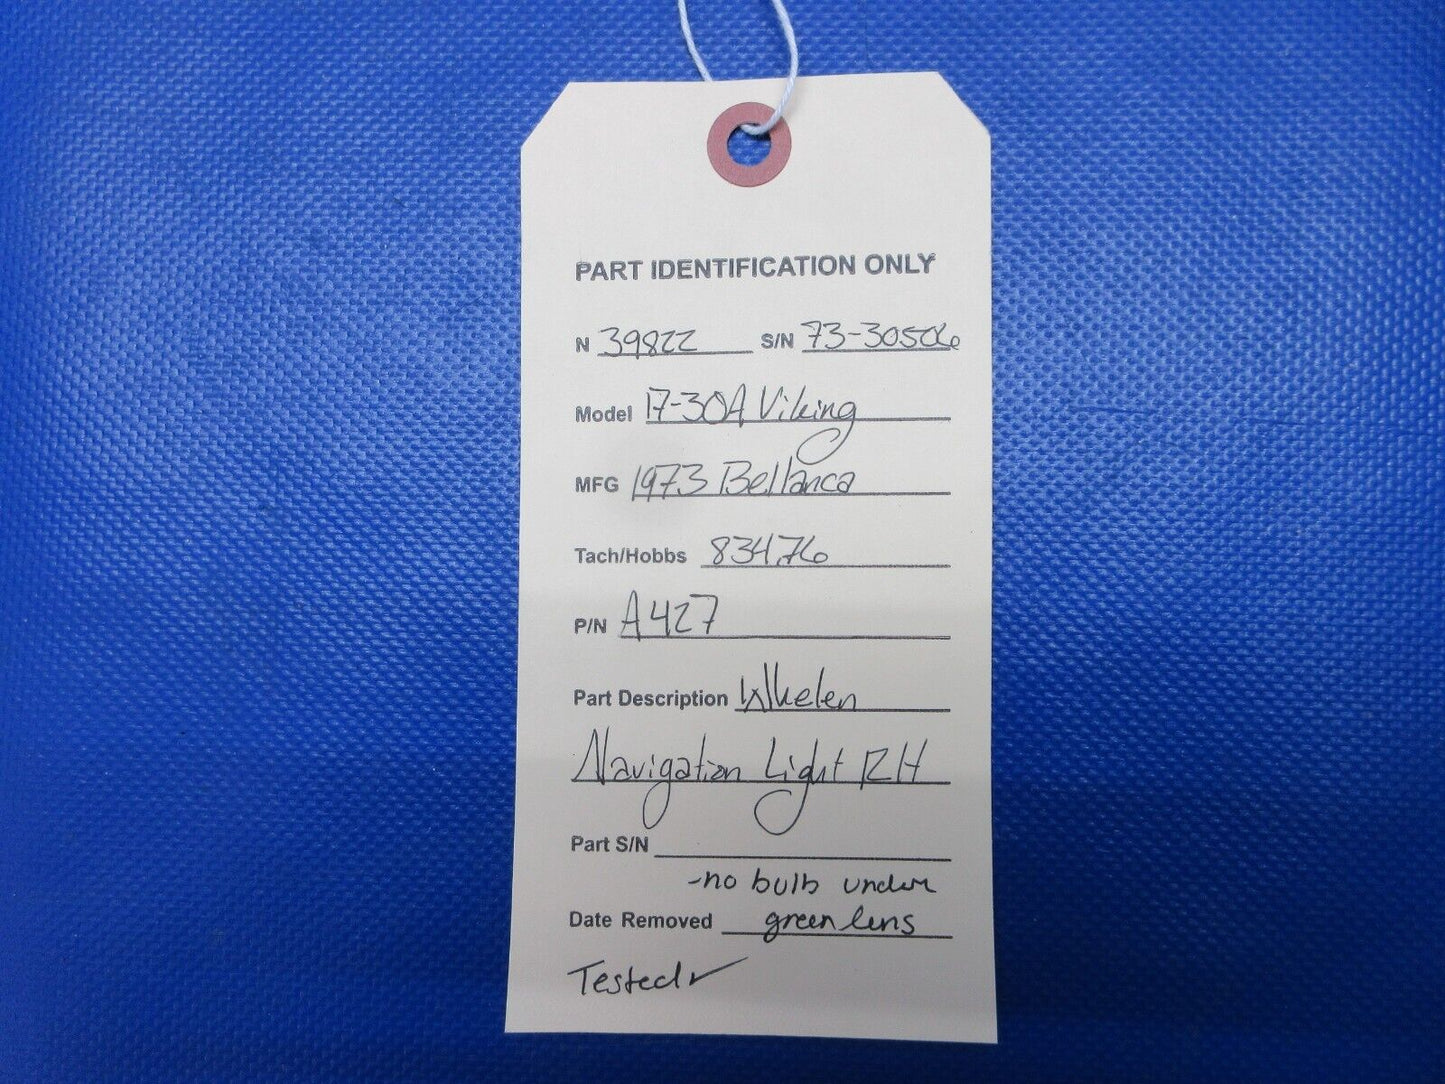 PART IDENTIFICATION ONLY
N 39822 S/N 73-30506
Model 17-30A Viking
MFG 1973 Bellanca
Tach/Hobbs 8347.76
P/N A427
Part Description Whelen
Navigation Light RH
Part S/N
-no bulb under
Date Removed green lens
Tested ✓